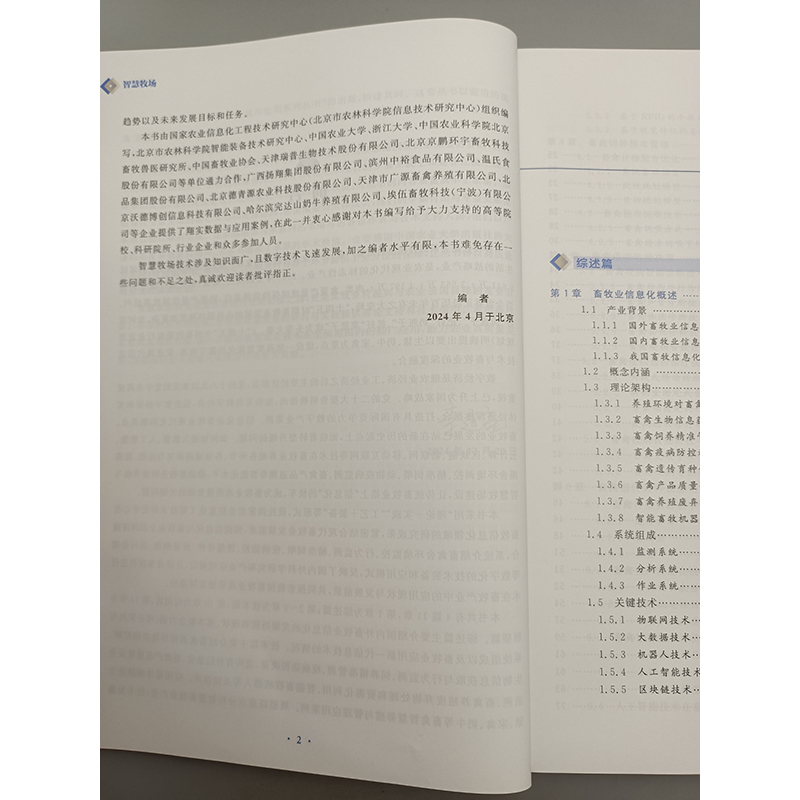 智慧牧场
趋势以及未来发展目标和任务。
本书由国家农业信息化工程技术研究中心(北京市农林科学院信息技术研究中心)组织编
写,北京市农林科学院智能装备技术研究中心、中国农业大学、浙江大学、中国农业科学院北京
畜牧兽医研究所、中国畜牧业协会、天津瑞普生物技术股份有限公司、北京京鹏环宇畜牧科技
股份有限公司等单位通力合作,广西扬翔集团股份有限公司、滨州中裕食品有限公司、温氏食
品集团股份有限公司、北京德青源农业科技股份有限公司、天津市广源畜禽养殖有限公司、北
京沃德博创信息科技有限公司、哈尔滨完达山奶牛养殖有限公司、埃伍畜牧科技(宁波)有限公
司等企业提供了翔实数据与应用案例,在此一并衷心感谢对本书编写给予大力支持的高等院
校、科研院所、行业企业和众多参加人员。
智慧牧场技术涉及知识面广,且数字技术飞速发展,加之编者水平有限,本书难免存在一
些问题和不足之处,真诚欢迎读者批评指正。
编 者
2024 年 4 月于北京
· 2 ·
综述篇
第 1 章 畜牧业信息化概述 ……
1.1 产业背景 ……
1.1.1 国外畜牧业信息
1.1.2 国内畜牧业信息
1.1.3 我国畜牧信息化
1.2 概念内涵 ……
1.3 理论架构 ……
1.3.1 养殖环境对畜禽
1.3.2 畜禽生物信息
1.3.3 畜禽饲养精准
1.3.4 畜禽疫病防控
1.3.5 畜禽遗传育种
1.3.6 畜禽产品质量
1.3.7 畜禽养殖废弃
1.3.8 智能畜牧机器
1.4 系统组成 ……
1.4.1 监测系统 ……
1.4.2 分析系统 ……
1.4.3 作业系统 ……
1.5 关键技术 ……
1.5.1 物联网技术
1.5.2 大数据技术
1.5.3 机器人技术
1.5.4 人工智能技术
1.5.5 区块链技术